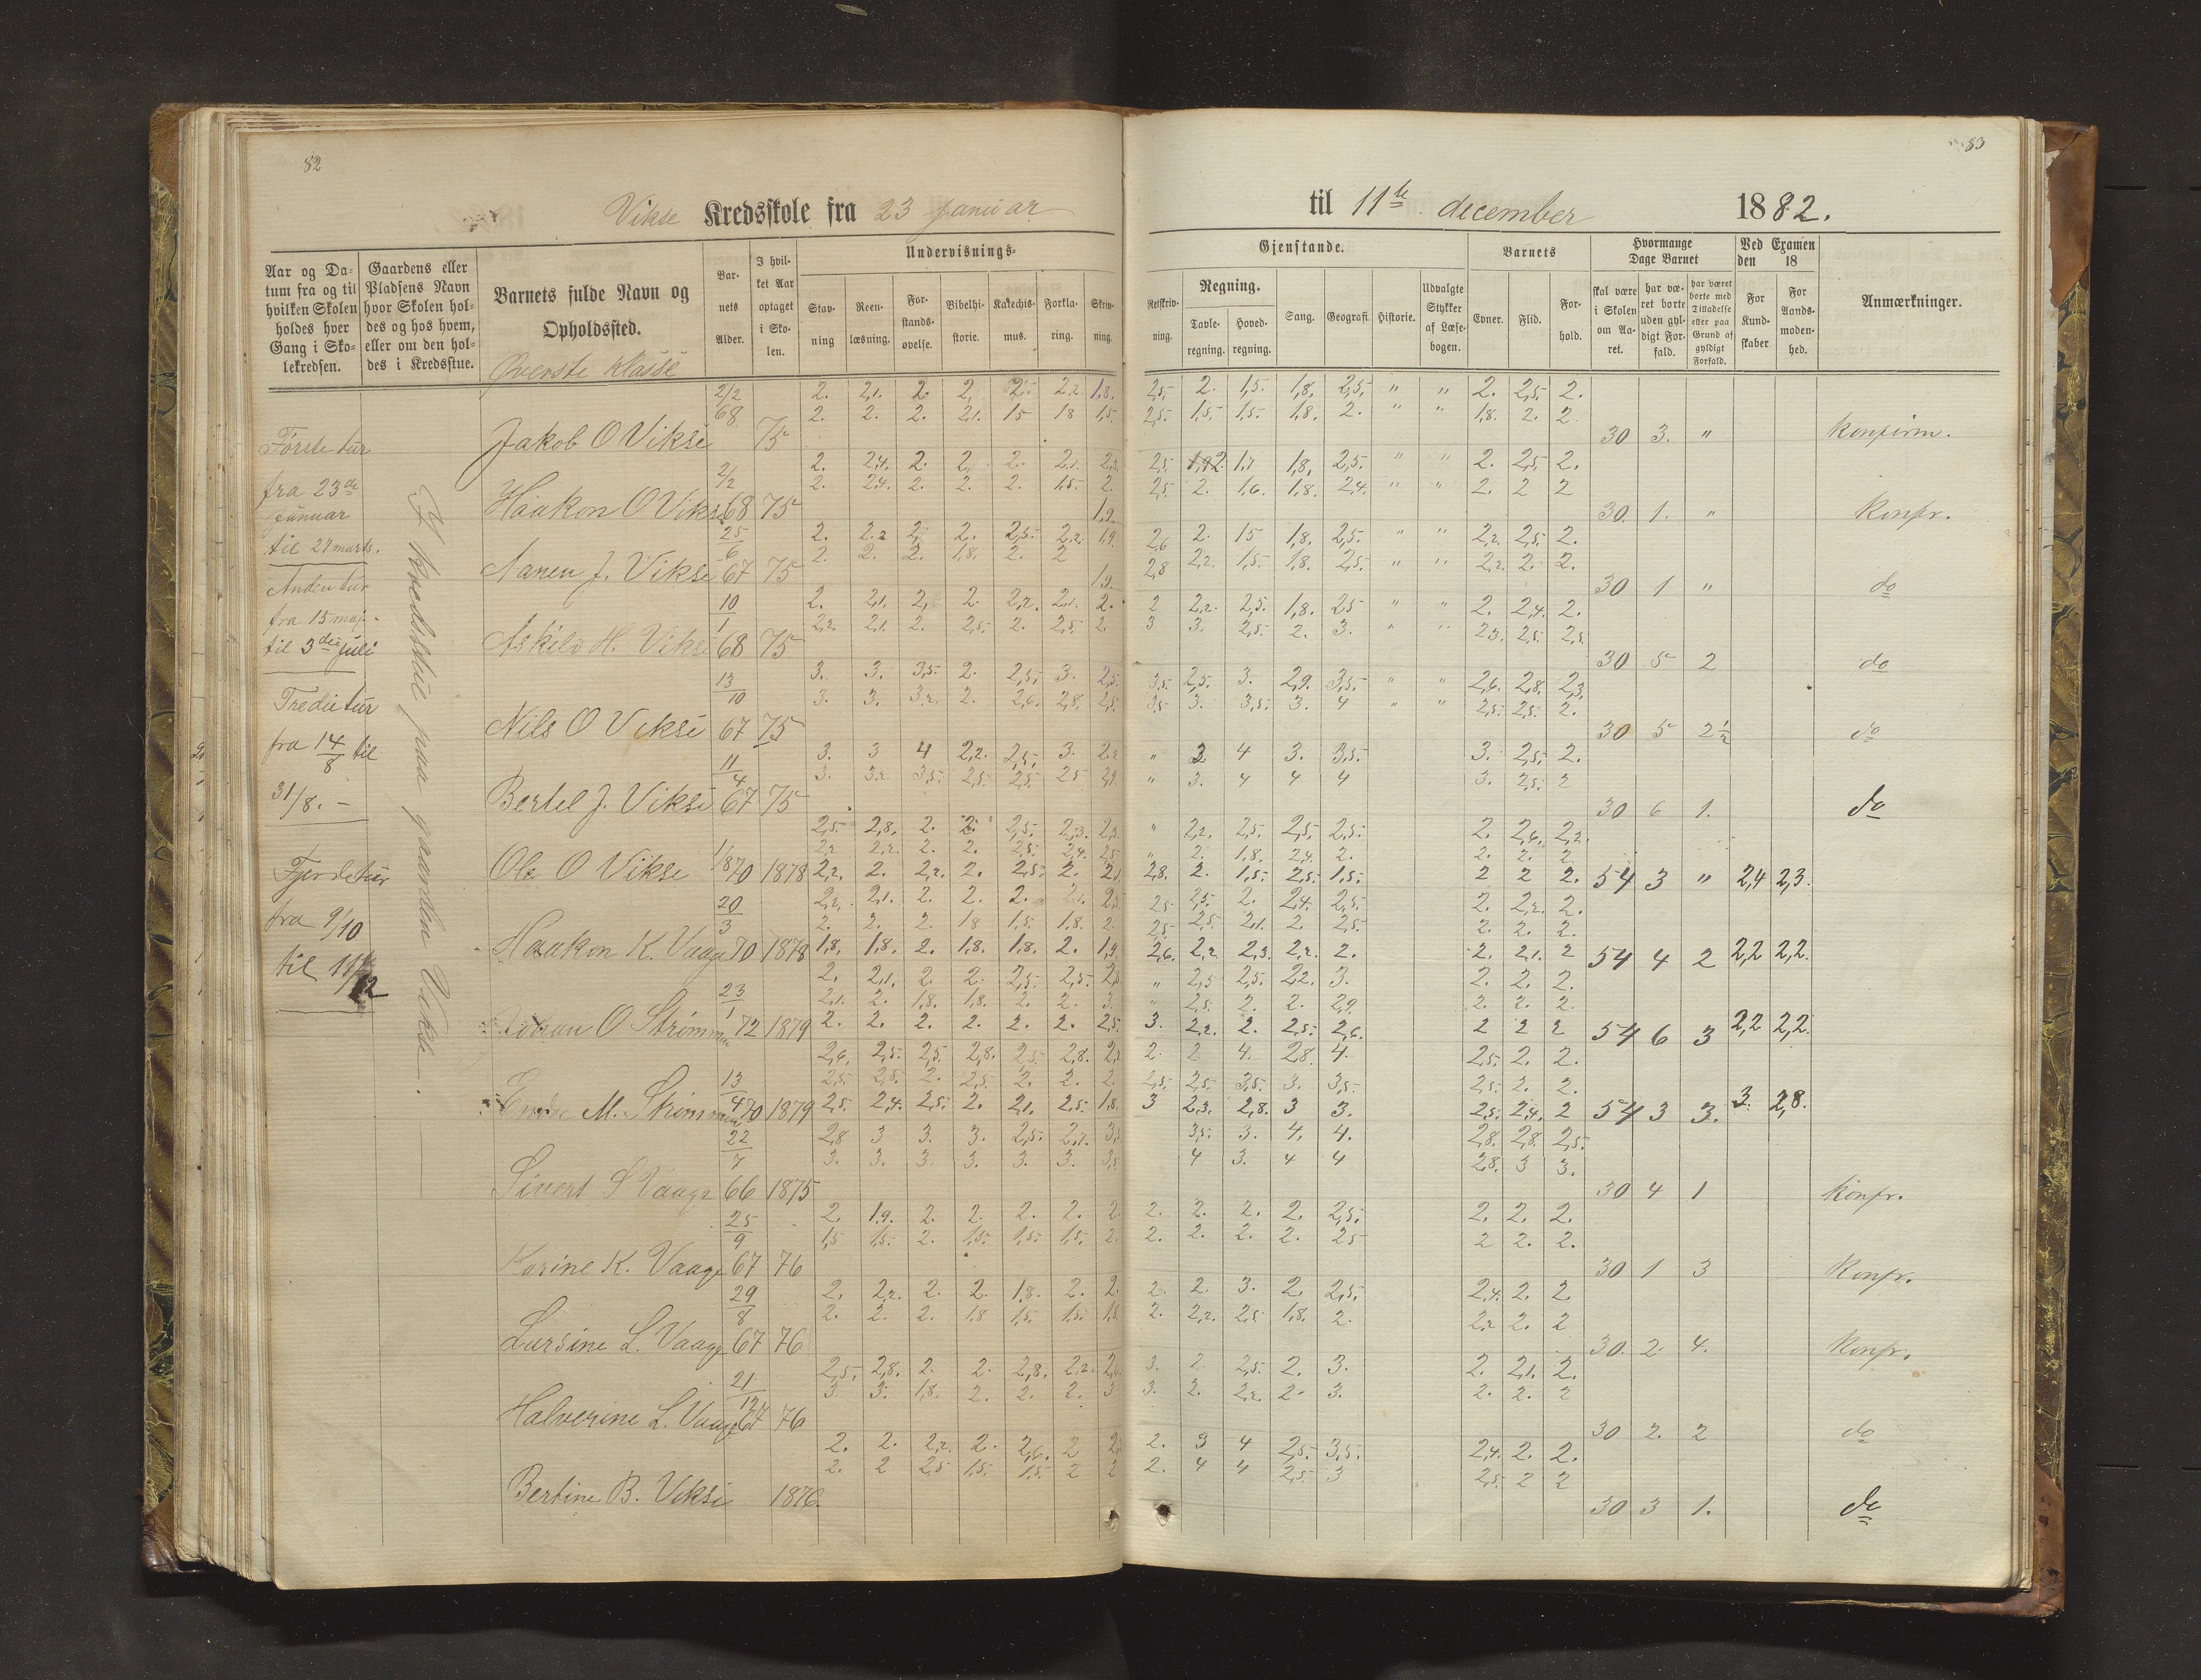 82
Vikse Kredsskole fra 23 januar
Aar og Datum fra og til hvilken Skolen holdes hver Gang i Skolekredsen.
Gaardens eller Pladsens Navn hvor Skolen holdes og hos hvem, eller om den holdes i Kredsstue.
Barnets fulde Navn og Opholdssted.
Øverste klasse
Barnets Alder.
I hvilket Aar optaget i Skolen.
Undervisnings-
Stavning
Reenlæsning.
Forstandsøvelse.
Bibelhistorie.
Katechismus.
Forklaring.
Skrivning.
Første tur
fra 23de
januar
til 24 marts.
Anden tur
fra 15 maj
til 3die juli
Tredie tur
fra 14/8 til
31/8. –
Fjerde tur
fra 9/10
til 11/12
I kredsstue paa gaarden Vikse.
2/2 2. 2,1. 2. 2, 2. 2,2. 1,8.
68 2. 2. 2. 2,1. 15 18 1,5.
Jakob O Vikse 75
2. 2,4. 2. 2. 2. 2,1. 2,2.
2/2 2. 2,4. 2. 2. 2. 1,5. 2.
Haakon O Vikse 68 75
1,9.
25/6 2. 2.2 2, 2. 2,5. 2,2. 1,9.
2. 2. 2. 1,8. 2. 2
Aanen J. Vikse 67 75
1,9.
10/1 2. 2,1. 2, 2. 2,2. 2,1. 2.
2,2. 2,1. 2. 2,5. 2. 2,5. 2
Askild H. Vikse 68 75
13/10 3. 3. 3,5. 2. 2,5. 3. 2,5.
3. 3. 3,2. 2. 2,6. 2,8. 2,5.
Nils O Vikse 67 75
11/4 3. 3 4 2,2. 2,5. 3. 2,2
3. 3,2. 3,5. 2,5. 2,5. 25 2,9.
Bertel J. Vikse 67 75
2,5. 2,8. 2. 2. 2,5. 2,3. 2,3.
2,2 2,2. 2. 2. 2,5. 2,4. 2,5
Ole O Vikse 1/8 70 1878 2,2. 2. 2,2. 2. 2,5. 2. 2,1
20/3 2,2. 2,1. 2. 2. 2. 2,1. 2,3
2. 2. 2. 18 1,5. 1,8. 2.
Haakon K. Vaage 70 1878 1,8. 1,8. 2. 1,8. 1,8. 2. 1,9.
2. 2,1. 2. 2. 2,5. 2,5. 2,
23/1 2,1. 2. 1,8. 1,8. 2. 2. 3.
Johan O Strømmen 72 1879 2. 2. 2. 2. 2. 2. 2,5.
2,6. 2,5. 2,5. 2,8. 2,5. 2,8. 2,
13/4 2,5. 2,5. 2. 2,5. 2. 2. 2.
Endre M. Strømmen 70 1879 2,5. 2,4. 2,5. 2. 2,1. 2,5. 1,8.
22/7 2,8 3 3. 3. 2,5. 2,7. 3,
3. 3. 3. 3. 3. 3. 3,
Sivert S Vaage 66 1875
25/9 2. 1,9. 2. 2. 2. 2. 2.
1,5 1,5. 2. 1,5. 1,5. 1,5. 2.
Karine K. Vaage 67 76
29/8 2. 2,2. 2. 2. 1,8. 2. 2.
2. 2. 2. 1,8 1,5. 1,5. 1,8.
Lursine L. Vaage 67 76
21/12 2,5. 2,8. 2. 2. 2,8. 2,2. 2,6.
3. 3. 1,8. 2. 2. 2. 3
Halverine L. Vaage 67 76
2. 2. 2,2. 2. 2,6. 2 2,
2. 2 2,5 1,5. 1,5. 2 2
Bertine B. Vikse 1876.
83
til 11te december 1882.
Gjenstande.
Retskrivning.
Regning.
Tavleregning.
Hovedregning.
Sang.
Geografi.
Historie.
Udvalgte Stykker af Læsebogen.
Barnets
Evner.
Flid.
Forhold.
Hvormange Dage Barnet
skal være i Skolen om Aaret.
har været borte uden gyldigt Forfald.
har været borte med Tilladelse eller paa Grund af gyldigt Forfald.
Ved Examen den 18
For Kundskaber
For Aandsmodenhed.
Anmærkninger.
2,5. 2. 1,5. 1,8. 2,5. " " 2. 2,5. 2.
2,5. 1,5. 1,5. 1,8. 2. " " 1,8. 2. 2
30 3. " Konfirm.
2,5. 1,92. 1,7 1,8. 2,5. " " 2. 2,5. 2.
2,5. 2. 1,6. 1,8. 2,4. " " 2. 2 2
30. 1. " Konfr.
2,6 2. 15 1,8. 2,5. " " 2,2. 2,5. 2.
2,8 2,2. 1,5. 1,8. 2,5. " " 2,2. 2. 2.
30 1 " do
2 2,2. 2,5. 1,8. 25 " " 2. 2,4. 2.
3 3. 2,5. 2. 3. " " 23. 2,5. 2,5
30 5 2 do
3,5. 2,5. 3. 2,9. 3,5. " " 2,6. 2,8. 2,3.
3,5 3. 3,5. 3. 4 " " 2,5. 2,5. 2.
30 5 2½ do
" 3 4 3. 3,5. 3. 2,5. 2.
" 3. 4 4 4 3. 2,5. 2
30 6 1. do
" 2,2. 2,5. 2,5. 2,5. 2. 2,6. 2,2.
" 2. 1,8. 2,4. 2. 2. 2. 2
2,8. 2. 1,5. 2,5. 1,5. 2 2 2. 54 3 " 2,4 2,3.
25 2,5. 2. 2,4. 2,5. 2. 2,2. 2.
2,5. 2,5. 2,1. 2. 2,5. 2. 2. 2.
2,6. 2,2. 2,3. 2,2. 2. 2. 2,1. 2 54 4 2 2,2 2,2.
" 2,5 2,5. 2,2. 3. 2. 2. 2.
" 2,5. 2. 2. 2,9. 2. 2. 2.
3. 2,2. 2. 2,5. 2,6. 2 2 2 54 6 3 2,2 2,2.
2. 2 4. 2,8. 4. 2,5. 2. 2.
2,5. 2,5. 3,5. 3. 3,5. 2,5. 2. 2.
3 2,3. 2,8. 3 3. 2,5. 2,4. 2 54 3 3. 3. 2,8.
3,5. 3. 4. 4. 2,8. 2,8. 2,5.
4 3. 4 4 2,8. 3 3.
30 4 1 Konfr.
2. 2. 2. 2. 2,5. 2. 2. 2.
2. 2. 2. 2. 25 2 2. 2.
30 1 3 Konfr.
2. 2 3. 2. 2,5. 2,4. 2. 2.
2. 2,2. 2,5 1,8. 2. 2,2 2. 2
30. 2. 4. Konfr.
3. 2. 2,5. 2. 3. 2. 2,1. 2.
3. 2. 2,2. 2. 3. 2. 2. 2
30 2. 2 do
2. 3 4 2,5. 3,5. 2,4. 2. 2.
2. 4 4 2,5. 3 2,5. 2 2
30 3 1. do